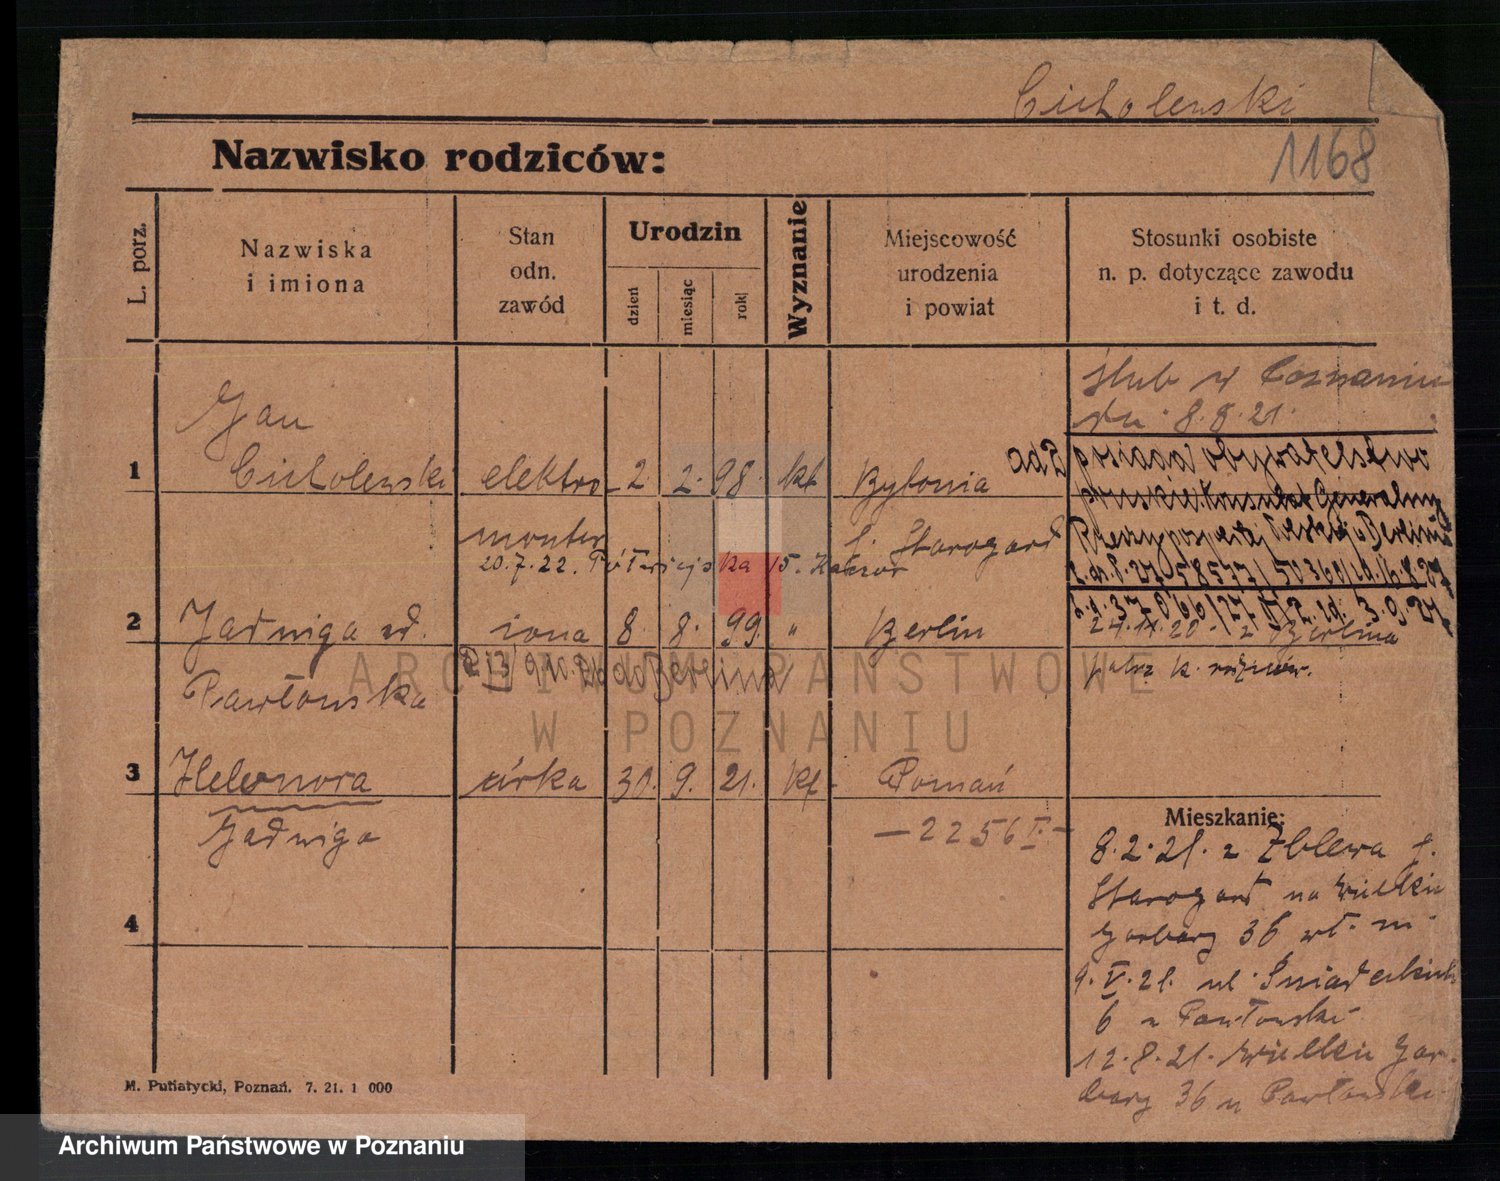 Cicholewski
Nazwisko rodziców:
1168
L. porz.
Nazwiska
i imiona
Stan
odn.
zawód
Urodzin
dzień
miesiąc
rok
Wyznanie
Miejscowość
urodzenia
i powiat
Stosunki osobiste
n. p. dotyczące zawodu
i t. d.
ślub w Poznaniu
dn. 8.8.21.
Jan
1 Cicholewski elektro- 2. 2. 98. kt Bytonia
monter p. Starogard
ad 2 posiada obywatelstwo
pruskie Konsulat Generalny
Rzeczypospolitej Polskiej Berlin
20.7.22. Półwiejska 15.
2 Jadwiga ur. żona 8. 8. 99. " Berlin
24.11.20. z Berlina
Pawłowska
do Berlina
3 Heleonora córka 30. 9. 21. kt. Poznań
Jadwiga
— 2256 I. —
4
Mieszkanie:
8.2.21. z Zblewa p.
Starogard na Wielkie
Garbary 36 wł. m.
9.V.21. ul. Śniadeckich
6 u Pawłowski
12.8.21. Wielkie Gar-
bary 36 u Pawłowski
M. Putiatycki, Poznań. 7. 21. 1 000
ARCHIWUM PAŃSTWOWE
W POZNANIU
Archiwum Państwowe w Poznaniu